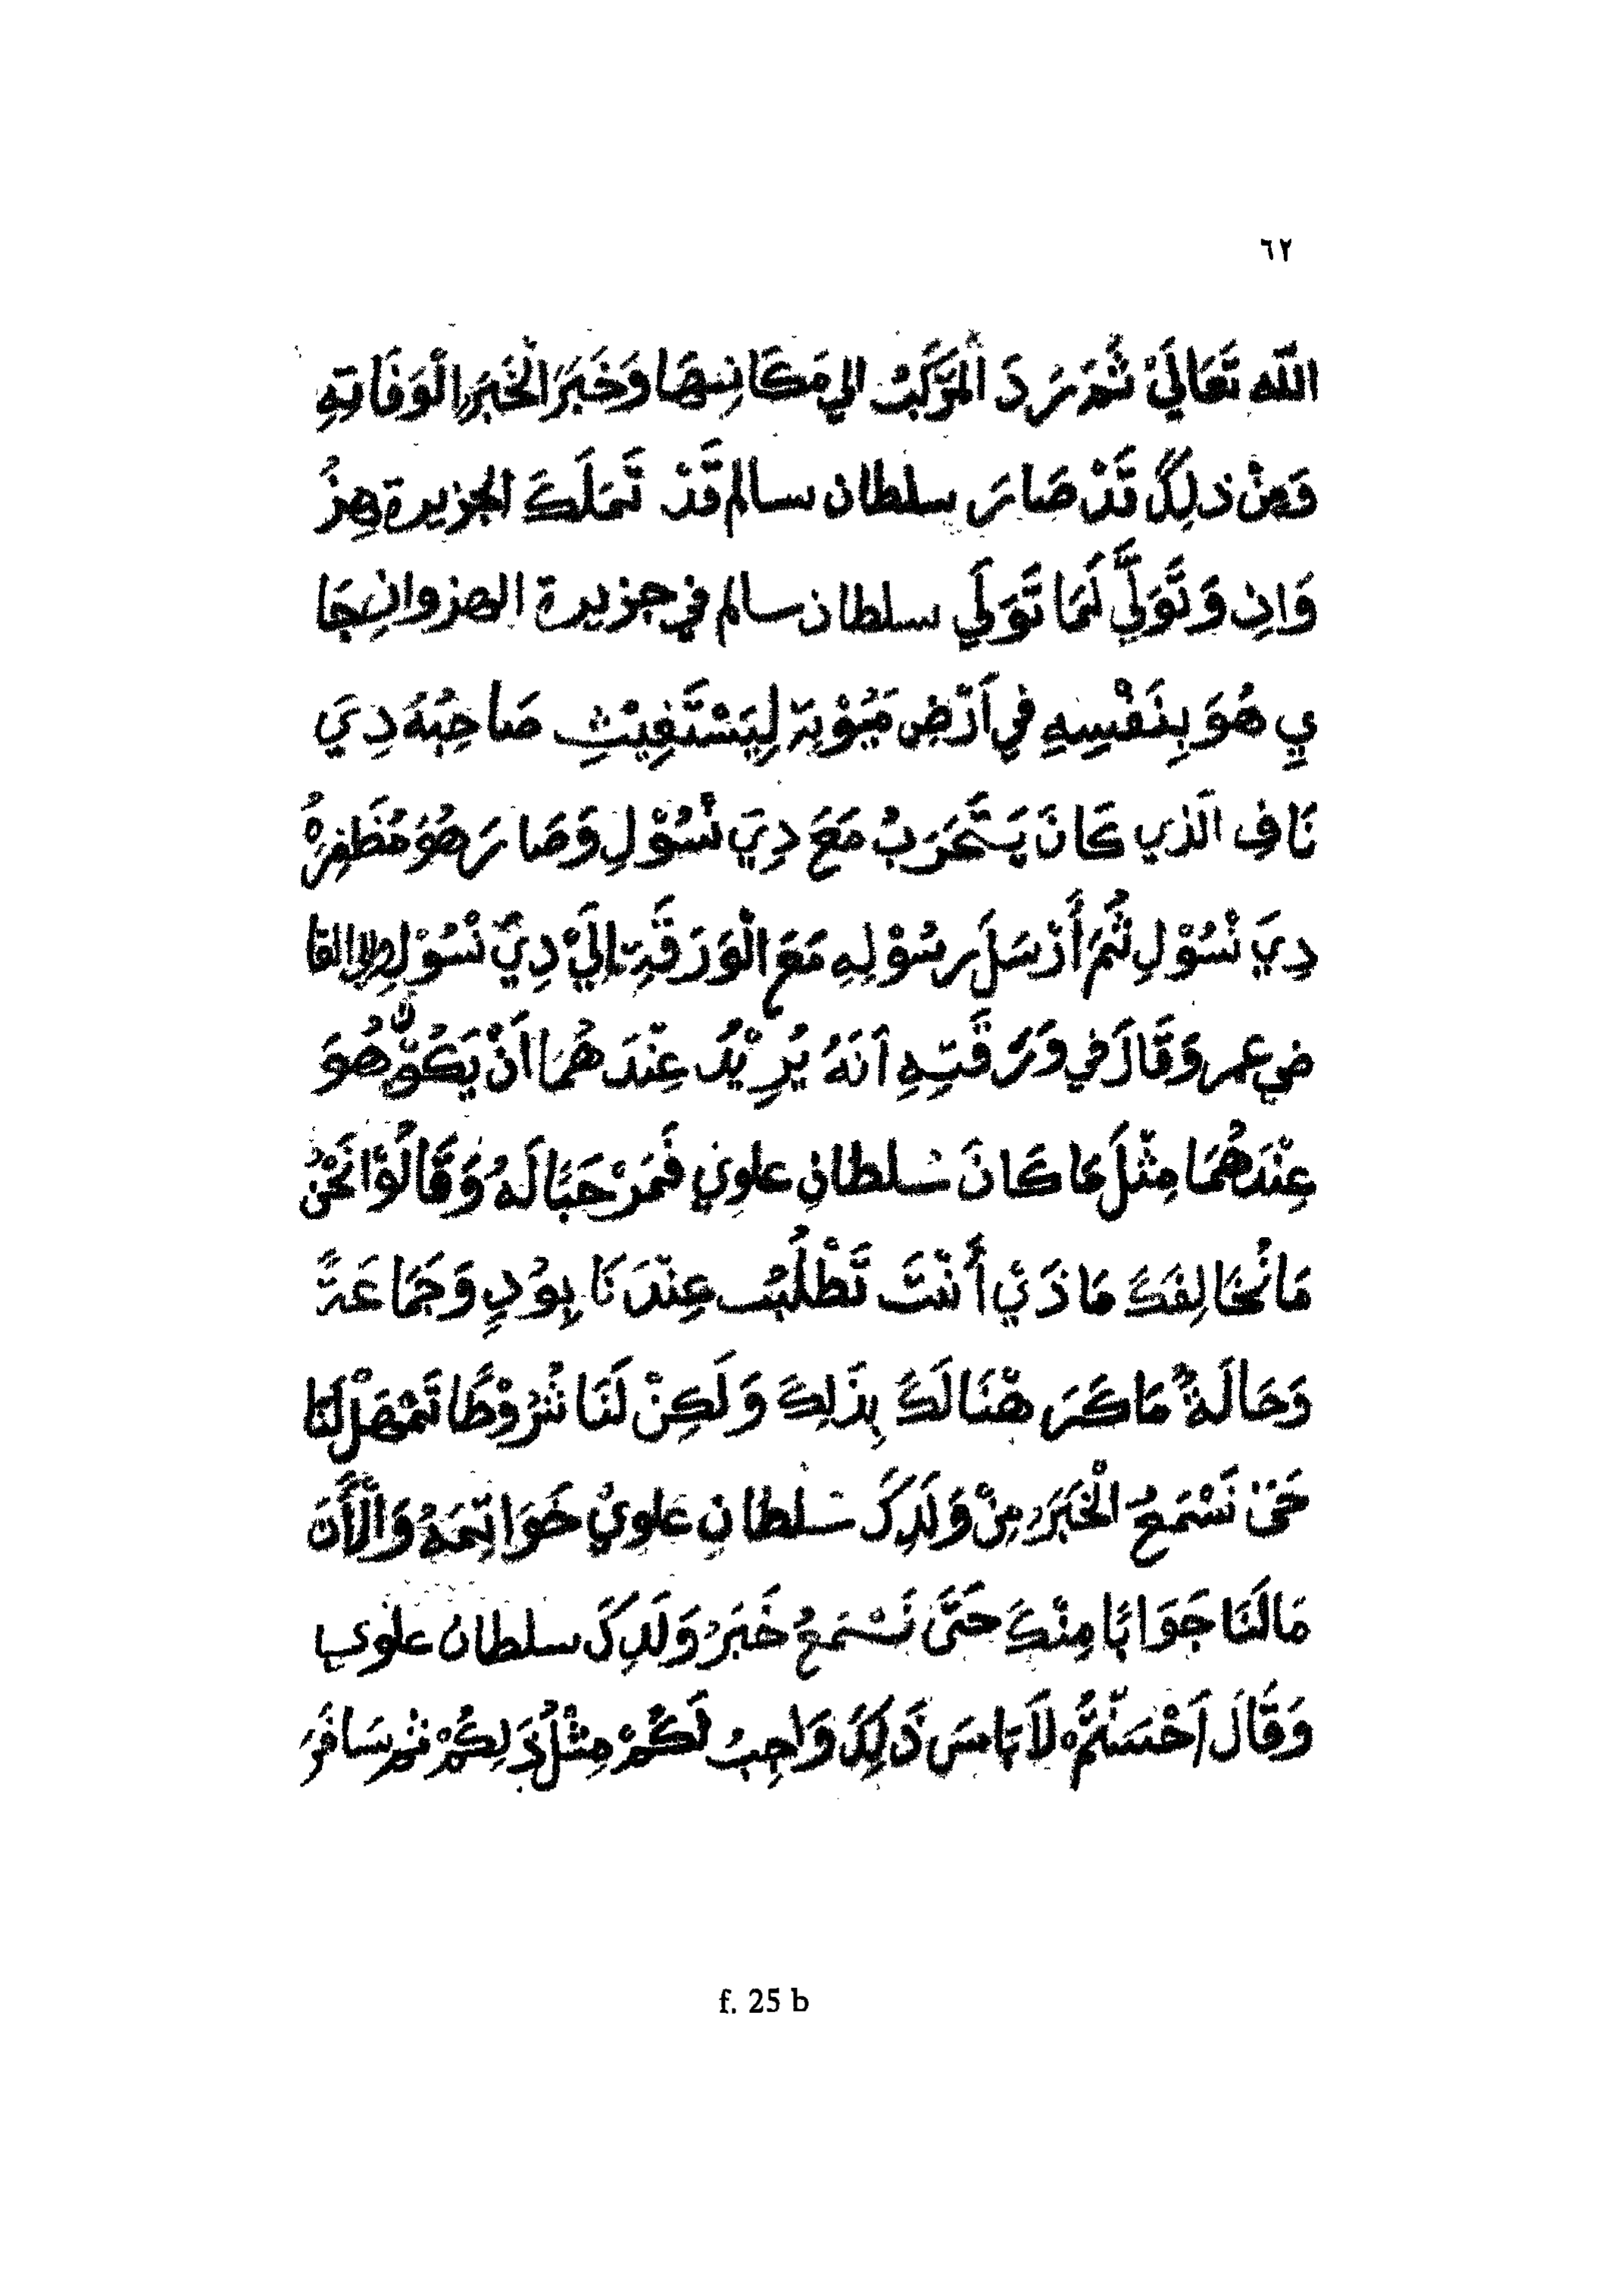 ٦٢
الله تَعَالَيْ ثُمَّ رَدَ الْمَرْكَبُ الي مَكَانِهَا وَخَبَرَ الْخَبَرَ الْوَفَاتِهِ
فَمِنْ ذلِكَ قَدْ صَارَ سلطان سالم قَدْ تَمَلَكَ الجزيرة هِزُ
وَانِ وَتَّوَلَّيَ لَمَا تَّوَلَي سلطان سالم في جزيرة الهزوانِ جَا
يِ هُوَ بِنَفْسِهِ فِي اَرْضِ مَيُوْتِة لِيَسْتَغِيْثِ صَاحِبُهَ دِيَ
نَافِ الَذي كَانَ يَتَّحَرَبُ مَعَ دِيَ نْسُوْلِ وَصَارَ هُوَ مُظَفِرُهْ
دِيَ نْسُوْلِ ثُمَّ أَرْسَلَ رسُوْلِهِ مَعَ الْوَرَقَةِ اِلَيْ دِيَ نْسُوْلِ وإلى القا
ضي عمر وَقَالَ في وَرَقَتِهِ اَنَهُ يُرِيْدُ عِنْدَ هُمَا اَنْ يَكُوْنَ هُوَ
عِنْدَهُمَا مِثْلَ مَا كَانَ سُلطانِ علوِي فَمَرْحَبًا لَهُ وَقَالُوْا نَحْنُ
مَانُخَالِفَكَ مَا ذَيْ أَنْتَ تَطْلُبُ عِنْدَنَا بِوُدٍ وَجَمَاعَةً
وَحَالَةُ مَا كَرَ هْنَالَكَ بِذَلِكَ وَلَكِنْ لَنَا شُرُوْطًا تَمْهَلْ لَنَا
حَتَى نَسْمَعُ الْخَبَرَ مِنْ وَلَدِكَ سُلطانِ علويْ خَوَاتِمَهُ وَالْأَنَ
مَالَنَا جَوَابًا مِنْكَ حَتَّى نَسْمَعُ خَبَرُ وَلَدِكَ سلطان علوي
وَقَالَ اَحْسَنْتُمْ لاَ بَاسَ ذَلِكَ وَاجِبُ لَكُمْ مِثْلُ ذَلِكُمْ ثم سَافَرَ
f. 25 b